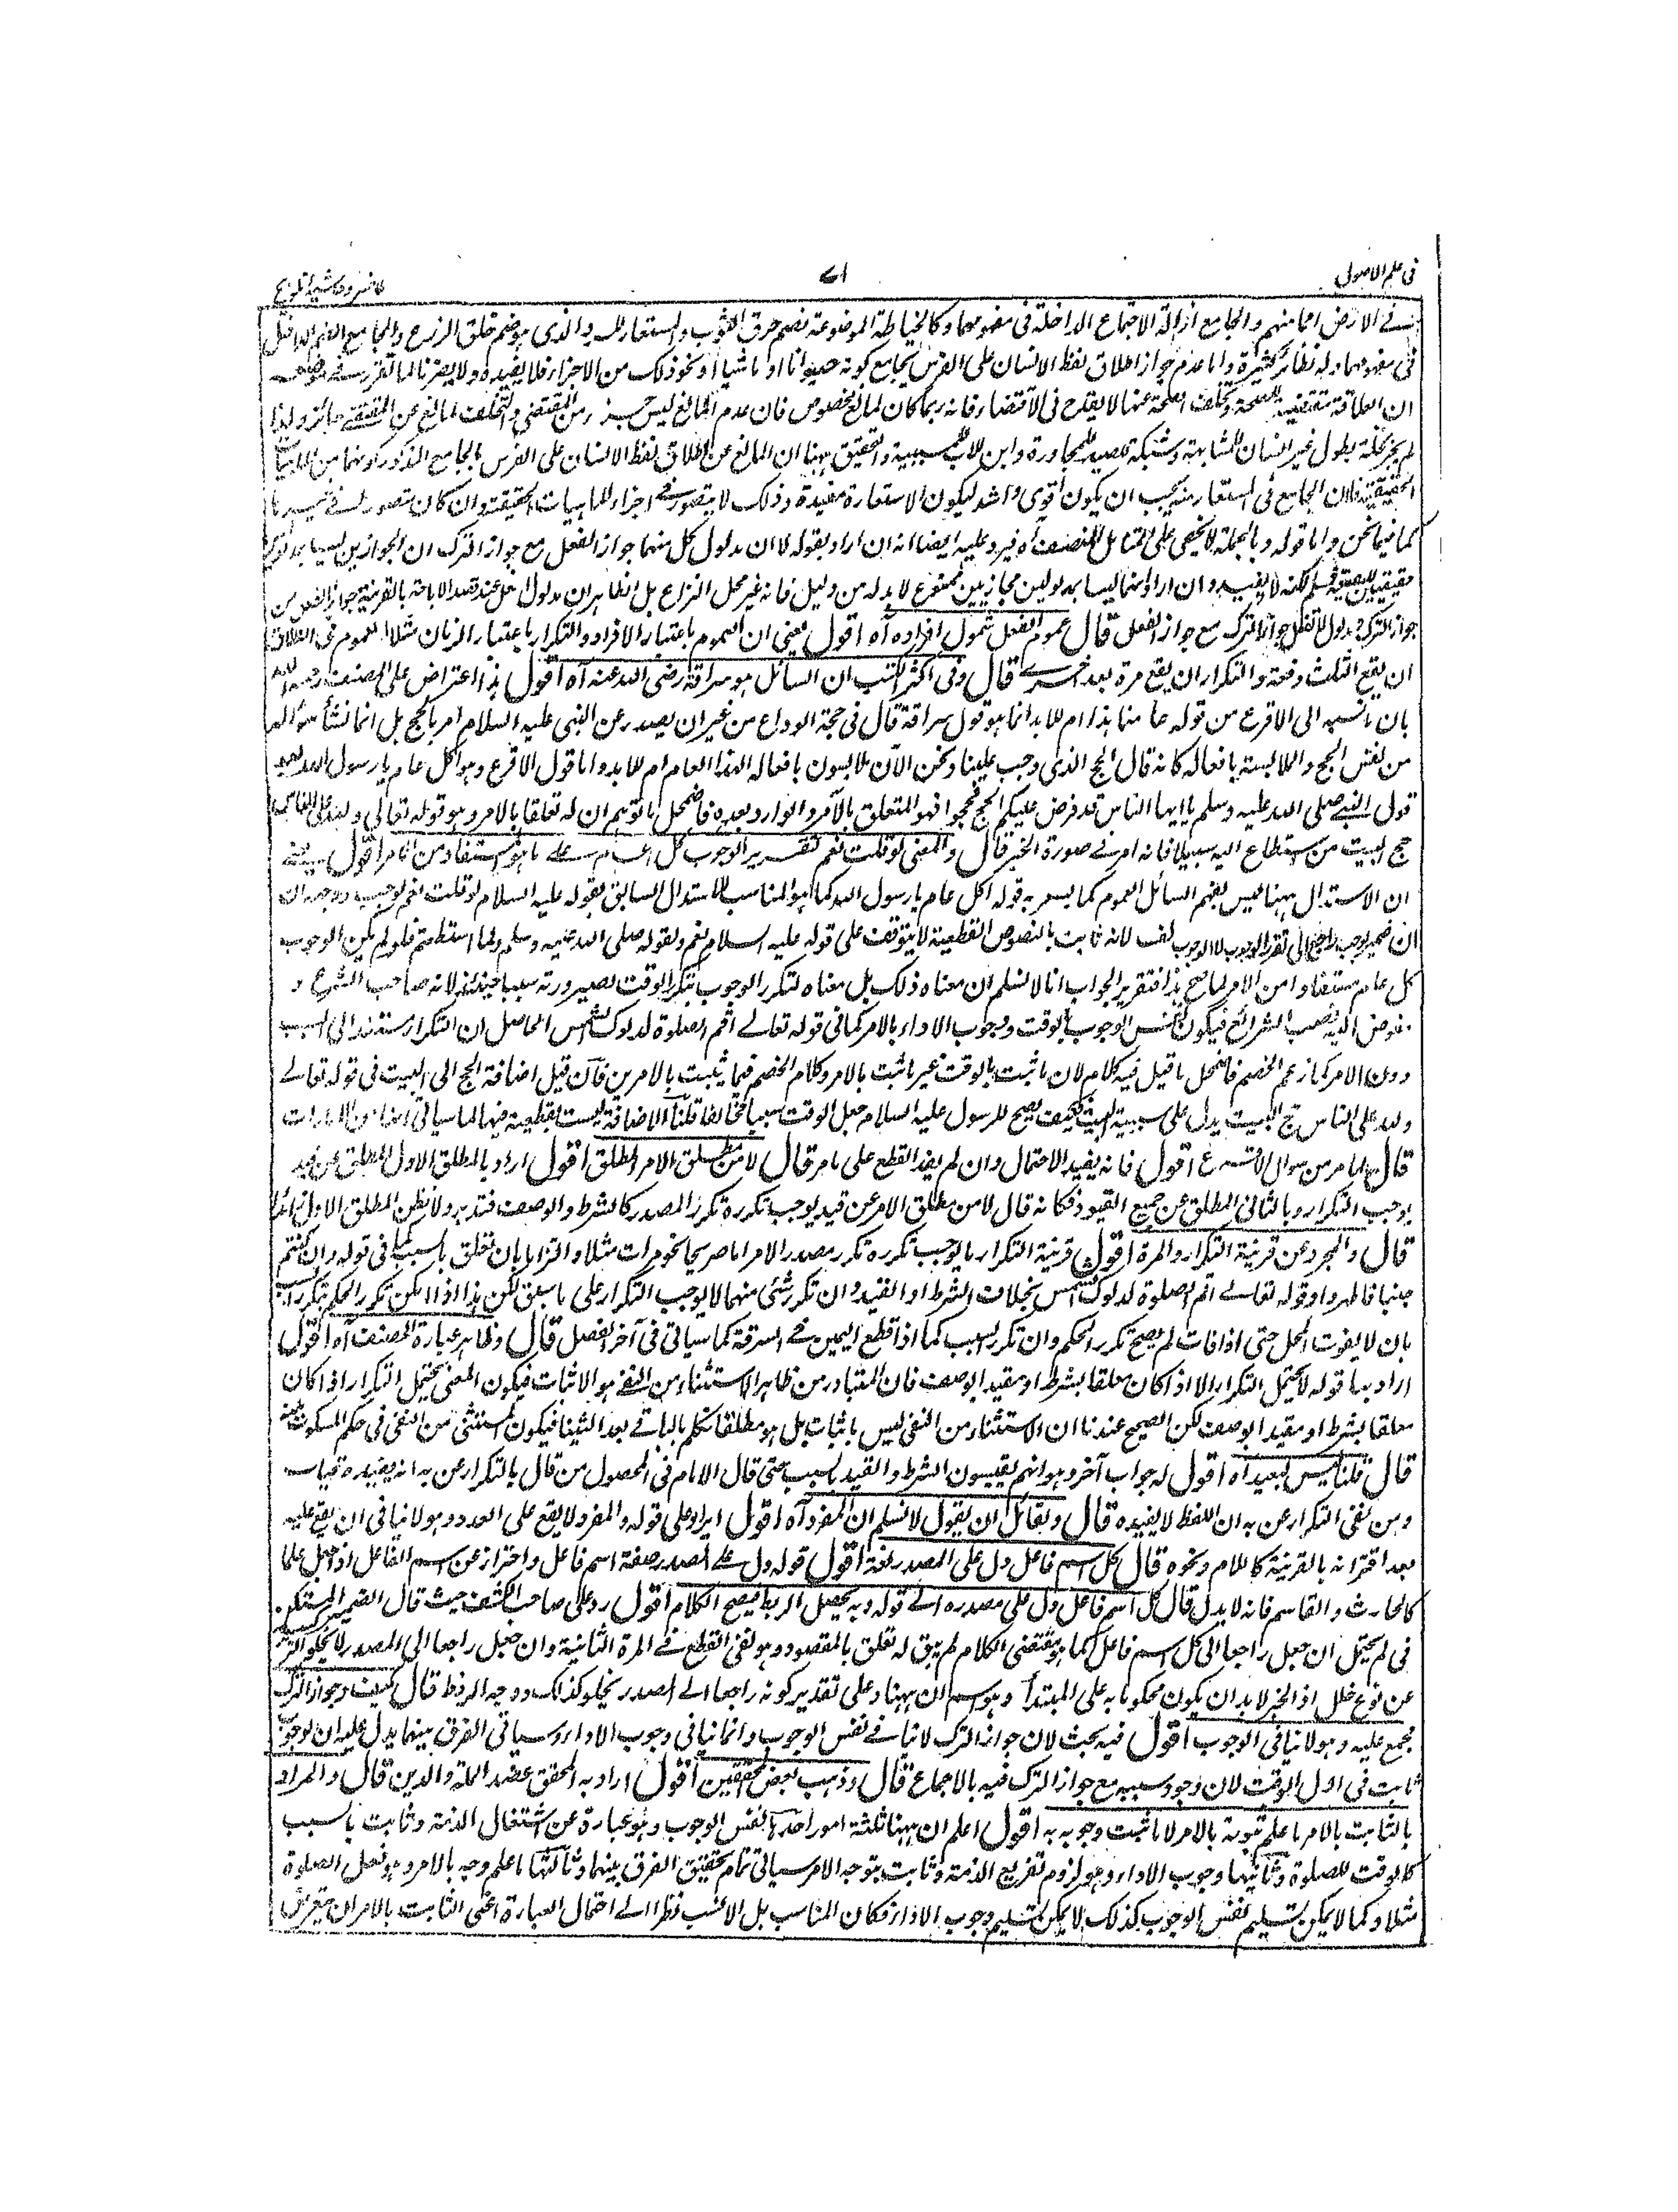 في علم الاصول
٧١
في الارض امما منهم والجامع ازالة الاجتماع الداخلة في مفهومهما وكالخياطة الموضوعة لضم خرق الثوب والمستعار الذي هو ضم حلق الزرع والجامع الضم الداخل
في مفهومهما وله نظائر كثيرة واما عدم جواز اطلاق لفظ الانسان على الفرس بجامع كونه حيوانا او ماشيا او نحو ذلك من الاجزاء فلا يفيده ولا يضرنا لما تقرر في موضعه
ان العلاقة مقتضية للصحة وتخلف الصحة عنها لا يقدح في الاقتضاء فانه ربما كان لمانع مخصوص فان عدم المانع ليس جزء من المقتضي والتخلف لمانع عن المقتضي جائز ولذا
لم يجز نخلة لطويل غير انسان للمشابهة وشبكة للصيد للمجاورة وابن للاب للسببية والتحقيق ههنا ان المانع عن اطلاق لفظ الانسان على الفرس بالجامع المذكور كونهما من الماهيات
الحقيقية فلان الجامع في المستعار منه يجب ان يكون اقوى واشد ليكون الاستعارة مفيدة وذلك لا يتصور في اجزاء الماهيات الحقيقية وان كان يتصور في غيرها
كما فيما نحن واما قوله وبالجملة لا يخفى على المتأمل المنصف آه فيرد عليه ايضا انه ان اراد بقوله لا ان مدلول كل منهما جواز الفعل مع جواز الترك ان الجوازين ليسا مدلولين
حقيقيين للصيغة فمسلم لكنه لا يفيد وان اراد انهما ليسا مدلولين مجازيين فممنوع لا بد له من دليل فانه غير محل النزاع بل الظاهر ان مدلول افعل عند قصد الاباحة بالقرينة جواز الفعل مع
جواز الترك ومدلول لا تفعل جواز الترك مع جواز الفعل قال عموم الفعل شمول افراده آه اقول يعني ان العموم باعتبار الافراد والتكرار باعتبار الزمان مثلا العموم في الطلاق
ان يقع الثلث دفعة والتكرار ان يقع مرة بعد اخرى قال وفي اكثر الكتب ان السائل هو سراقة رضي الله عنه آه اقول هذا اعتراض على المصنف رحمه الله
بان ما نسبه الى الاقرع من قوله عامنا هذا ام للابد انما هو قول سراقة قال في حجة الوداع من غير ان يصدر عن النبي عليه السلام امر بالحج بل انما نشأ سؤاله
من نفس الحج والملابسة بافعاله كانه قال الحج الذي وجب علينا ونحن الآن ملابسون بافعاله الهذا العام ام للابد واما قول الاقرع وهو اكل عام يا رسول الله فبعد
قول النبي صلى الله عليه وسلم يا ايها الناس قد فرض عليكم الحج فحجوا فهو المتعلق بالامر والوارد بعده فاضمحل ما توهم ان له تعلقا بالامر وهو قوله تعالى ولله على الناس
حج البيت من استطاع اليه سبيلا فانه امر في صورة الخبر قال والمعنى لو قلت نعم لتقرر الوجوب كل عام على ما هو المستفاد من الامر اقول يعني
ان الاستدلال ههنا ليس بفهم السائل العموم كما يشعر به قوله اكل عام يا رسول الله كما هو المناسب للاستدلال السابق بقوله عليه السلام لو قلت نعم لوجب ووجهه ان
ان ضمير لوجب راجع الى تقرر الوجوب لا الوجوب نفسه لانه ثابت بالنصوص القطعية لا يتوقف على قوله عليه السلام نعم ولقوله صلى الله عليه وسلم ولما استطعتم فلو لم يكن الوجوب
كل عام مستفادا من الامر لما صح هذا فتقرير الجواب انا لا نسلم ان معناه ذلك بل معناه لتكرر الوجوب بتكرر الوقت لصيرورته سببا حينئذ لانه صاحب الشرع و
مفوض اليه نصب الشرائع فيكون نفس الوجوب بالوقت ووجوب الاداء بالامر كما في قوله تعالى اقم الصلوة لدلوك الشمس الحاصل ان التكرار مستند الى السبب
دون الامر كما زعم الخصم فاضمحل ما قيل فيه كلام لان ما ثبت بالوقت غير ما ثبت بالامر وكلام الخصم فيما يثبت بالامر من فآن قيل اضافة الحج الى البيت في قوله تعالى
ولله على الناس حج البيت يدل على سببية البيت فكيف يصح للرسول عليه السلام جعل الوقت سببا مخالفا قلنا الاضافة ليست بقطعية فيها لما سيأتي انها من الامارات
قال لما مر من سوال الاقرع اقول فانه يفيد الاحتمال وان لم يفد القطع على ما مر قال لا من مطلق الامر المطلق اقول اراد بالمطلق الاول المطلق عن قيد
يوجب التكرار وبالثاني المطلق عن جميع القيود فكانه قال لا من مطلق الامر عن قيد يوجب تكرره تكرر المصدر كالشرط والوصف فتدبر ولا تظن المطلق الاول زائدا
قال والمجرد عن قرينة التكرار والمرة اقول قرينة التكرار ما يوجب تكرره تكرر مصدر الامر اما صريحا نحو مرات مثلا او التزاما بان تعلق بالسبب كما في قوله وان كنتم
جنبا فاطهروا وقوله تعالى اقم الصلوة لدلوك الشمس بخلاف الشرط او القيد وان تكرر شئ منهما لا يوجب التكرار على ما سبق لكن هذا اذا امكن تكرر الحكم بتكرر السبب
بان لا يفوت المحل حتى اذا فات لم يصح تكرر الحكم وان تكرر السبب كما اذا قطع اليمين في السرقة كما سيأتي في آخر الفصل قال وظاهر عبارة المصنف آه اقول
اراد بها قوله لا يحتمل التكرار الا اذا كان معلقا بشرط او مقيدا بوصف فان المتبادر من ظاهر الاستثناء من النفي هو الاثبات فيكون المعنى يحتمل التكرار اذا كان
معلقا بشرط او مقيدا بوصف لكن الصحيح عندنا ان الاستثناء من النفي ليس باثبات بل هو مطلقا تكلم بالباقي بعد الثنيا فيكون المستثنى من النفي في حكم المسكوت عنه
قال قلنا ليس ببعيد آه اقول له جواب آخر وهو انهم يقيسون الشرط والقيد بالسبب حتى قال الامام في المحصول من قال بالتكرار عن به انه يفيده قياسا
ومن نفى التكرار عن به ان اللفظ لا يفيده قال ولقائل ان يقول لا نسلم ان المفرد آه اقول ايراد على قوله والمفرد لا يقع على العدد وهو لا ينافي ان يقع عليه
بعد اقترانه بالقرينة كاللام ونحوه قال كل اسم فاعل دل على المصدر لغة اقول قوله دل على المصدر صفة اسم فاعل واحتراز عن اسم الفاعل اذا جعل علما
كالحارث والقاسم فانه لا يدل قال كل اسم فاعل دل على مصدره الى قوله وبه يحصل الربط فيصح الكلام اقول رد على صاحب الكشف حيث قال الضمير المستكن
في لم يحتمل ان جعل راجعا الى كل اسم فاعل كما هو مقتضى الكلام لم يبق له تعلق بالمقصود وهو نفي القطع في المرة الثانية وان جعل راجعا الى المصدر لا يخلو التركيب
عن نوع خلل اذ الخبر لا بد ان يكون محكوما به على المبتدأ وهو اسم ان ههنا وعلى تقدير كونه راجعا الى المصدر يخلو كذلك ووجه الرد ظ قال كيف وجواز الترك
مجمع عليه وهو لا ينافي الوجوب اقول فيه بحث لان جواز الترك لا ينافي نفس الوجوب وانما ينافي وجوب الاداء وسيأتي الفرق بينهما يدل عليه ان الوجوب
ثابت في اول الوقت لان وجود سببه مع جواز الترك فيه بالاجماع قال وذهب بعض المحققين اقول اراد به المحقق عضد الملة والدين قال والمراد
بالثابت بالامر ما علم ثبوته بالامر لا ما ثبت وجوبه به اقول اعلم ان ههنا ثلثة امور احدها نفس الوجوب وهو عبارة عن اشتغال الذمة وثابت بالسبب
كالوقت للصلوة وثانيها وجوب الاداء وهو لزوم تفريغ الذمة وثابت بتوجه الامر سيأتي تمام تحقيق الفرق بينهما وثالثها ما علم وجه بالامر وهو فعل الصلوة
مثلا وكما لا يمكن تسليم نفس الوجوب كذلك لا يمكن تسليم وجوب الاداء فكان المناسب بل الانسب نظرا الى احتمال العبارة اعني الثابت بالامر ان يتعرض